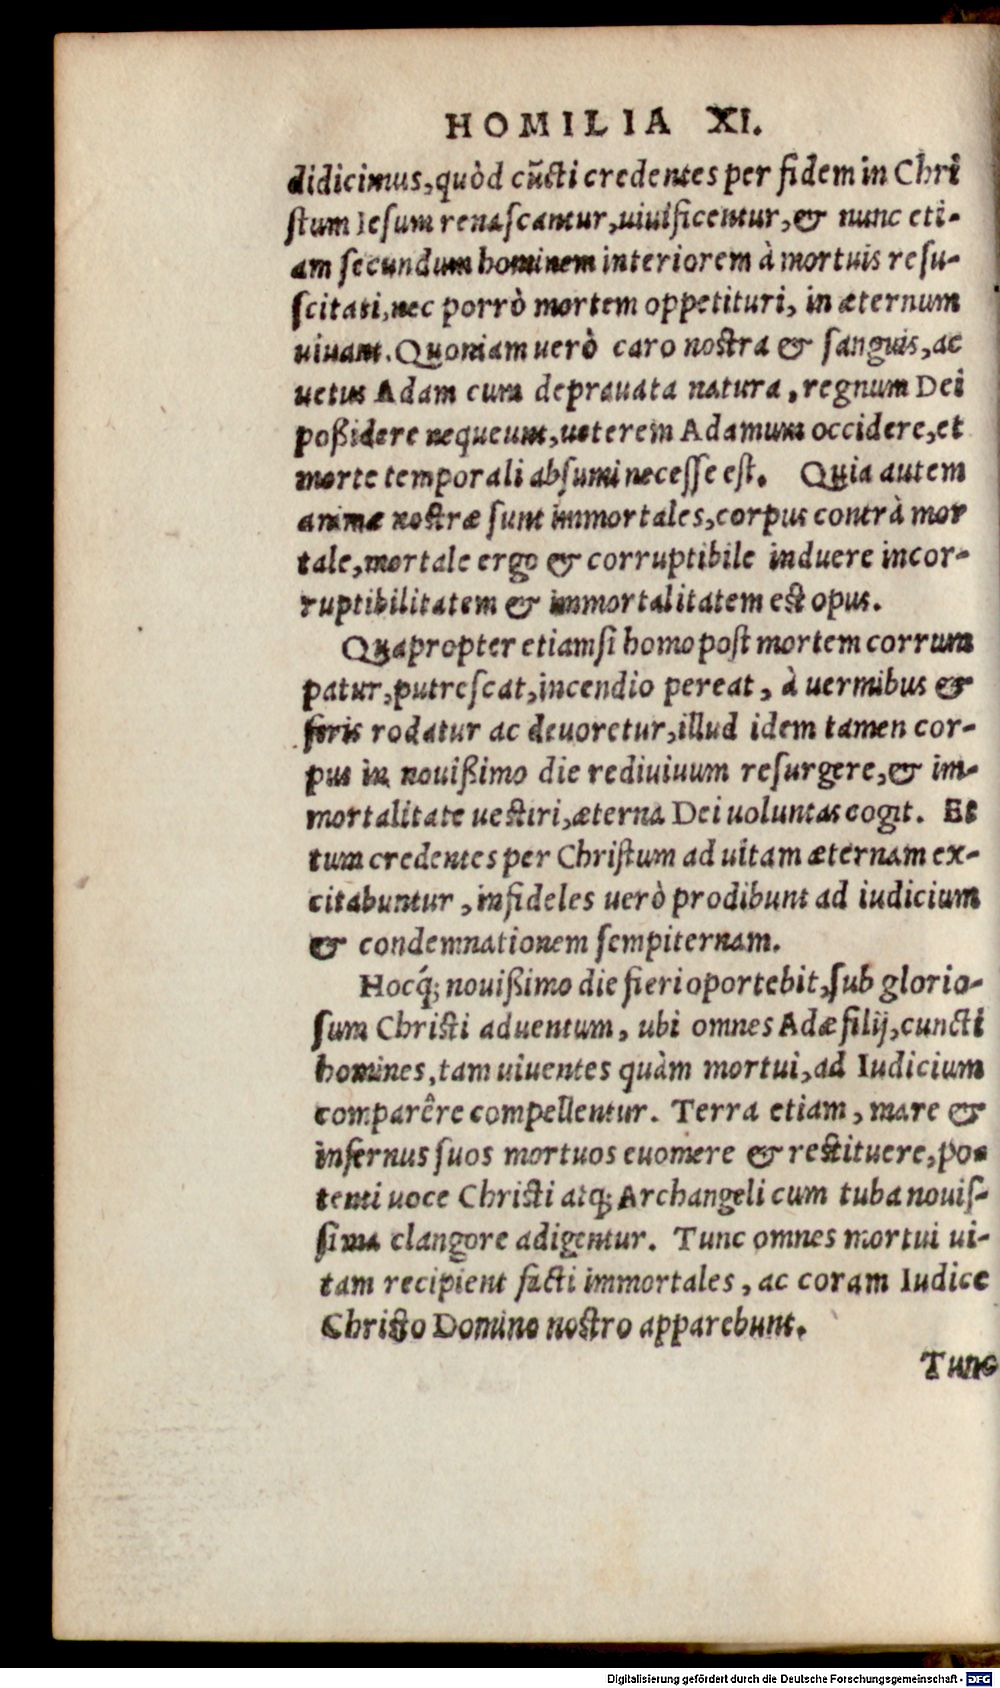 HOMILIA XI.
didicimus, quòd cũcti credentes per fidem in Chri
ſtum Ieſum renaſcantur, uiuificentur, & nunc eti-
am ſecundum hominem interiorem à mortuis reſu-
ſcitati, nec porrò mortem oppetituri, in æternum
uiuant. Quoniam uerò caro noſtra & ſanguis, ac
uetus Adam cum deprauata natura, regnum Dei
poßidere nequeunt, ueterem Adamum occidere, et
morte temporali abſumi neceſſe eſt. Quia autem
animæ noſtræ ſunt immortales, corpus contrà mor
tale, mortale ergo & corruptibile induere incor-
ruptibilitatem & immortalitatem eſt opus.
Quapropter etiamſi homo poſt mortem corrum
patur, putreſcat, incendio pereat, à uermibus &
feris rodatur ac deuoretur, illud idem tamen cor-
pus in nouißimo die rediuiuum reſurgere, & im-
mortalitate ueſtiri, æterna Dei uoluntas cogit. Et
tum credentes per Chriſtum ad uitam æternam ex-
citabuntur, infideles uerò prodibunt ad iudicium
& condemnationem ſempiternam.
Hocq́; nouißimo die fieri oportebit, ſub glorio-
ſum Chriſti aduentum, ubi omnes Adæ filij, cuncti
homines, tam uiuentes quàm mortui, ad Iudicium
comparêre compellentur. Terra etiam, mare &
infernus ſuos mortuos euomere & reſtituere, po-
tenti uoce Chriſti atq; Archangeli cum tuba nouiſ-
ſima clangore adigentur. Tunc omnes mortui ui-
tam recipient facti immortales, ac coram Iudice
Chriſto Domino noſtro apparebunt.
Tunc
Digitalisierung gefördert durch die Deutsche Forschungsgemeinschaft - DFG